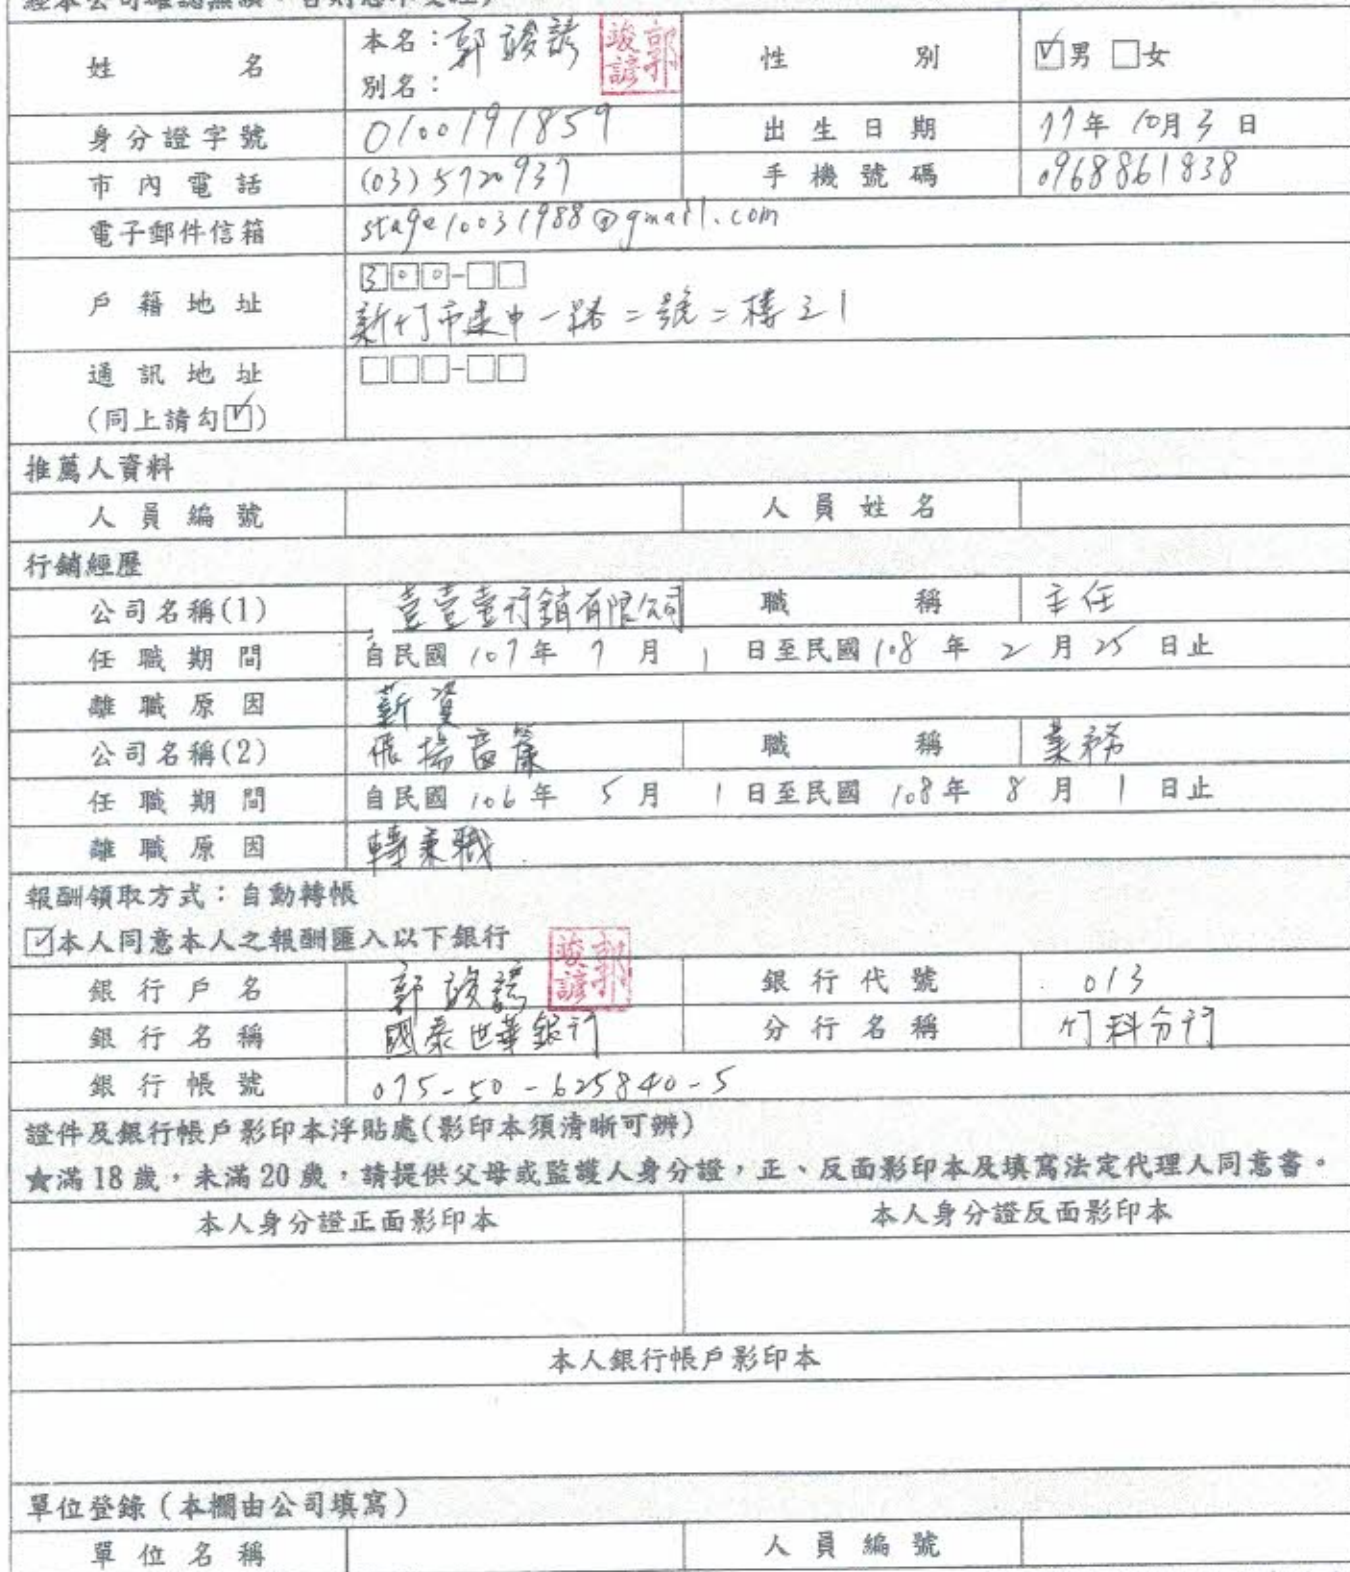 姓名 本名：郭竣諺 郭竣諺 性別 ☑男 □女
別名：
身分證字號 0100191859 出生日期 77年10月3日
市內電話 (03)5720937 手機號碼 0968861838
電子郵件信箱 stage10031988@gmail.com
戶籍地址 300-□□
新竹市建中一路二號二樓之1
通訊地址 □□□-□□
(同上請勾☑)
推薦人資料
人員編號 人員姓名
行銷經歷
公司名稱(1) 壹壹壹行銷有限公司 職稱 主任
任職期間 自民國107年7月1日至民國108年2月25日止
離職原因 薪資
公司名稱(2) 飛揚 職稱 業務
任職期間 自民國106年5月1日至民國108年8月1日止
離職原因 轉兼職
報酬領取方式：自動轉帳
☑本人同意本人之報酬匯入以下銀行
銀行戶名 郭竣諺 郭竣諺 銀行代號 013
銀行名稱 國泰世華銀行 分行名稱 竹科分行
銀行帳號 075-50-625840-5
證件及銀行帳戶影印本浮貼處(影印本須清晰可辨)
★滿18歲，未滿20歲，請提供父母或監護人身分證，正、反面影印本及填寫法定代理人同意書。
本人身分證正面影印本 本人身分證反面影印本
本人銀行帳戶影印本
單位登錄（本欄由公司填寫）
單位名稱 人員編號